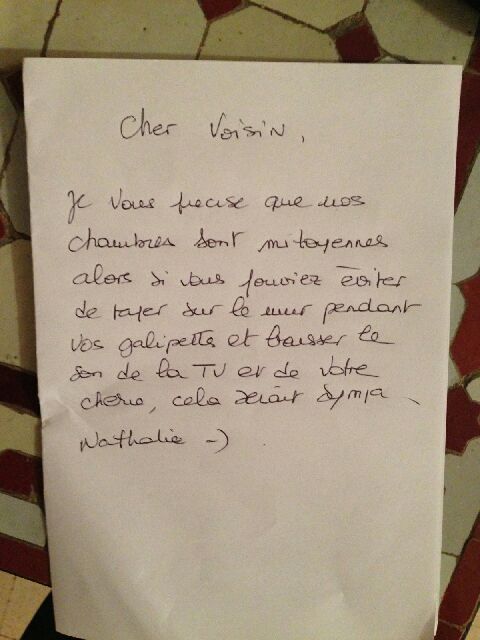 Cher Voisin,
Je vous precise que nos
chambres sont mitoyennes
alors si vous pouviez éviter
de taper sur le mur pendant
vos galipettes et baisser le
son de la TV et de votre
cherie, cela serait sympa.
Nathalie -)